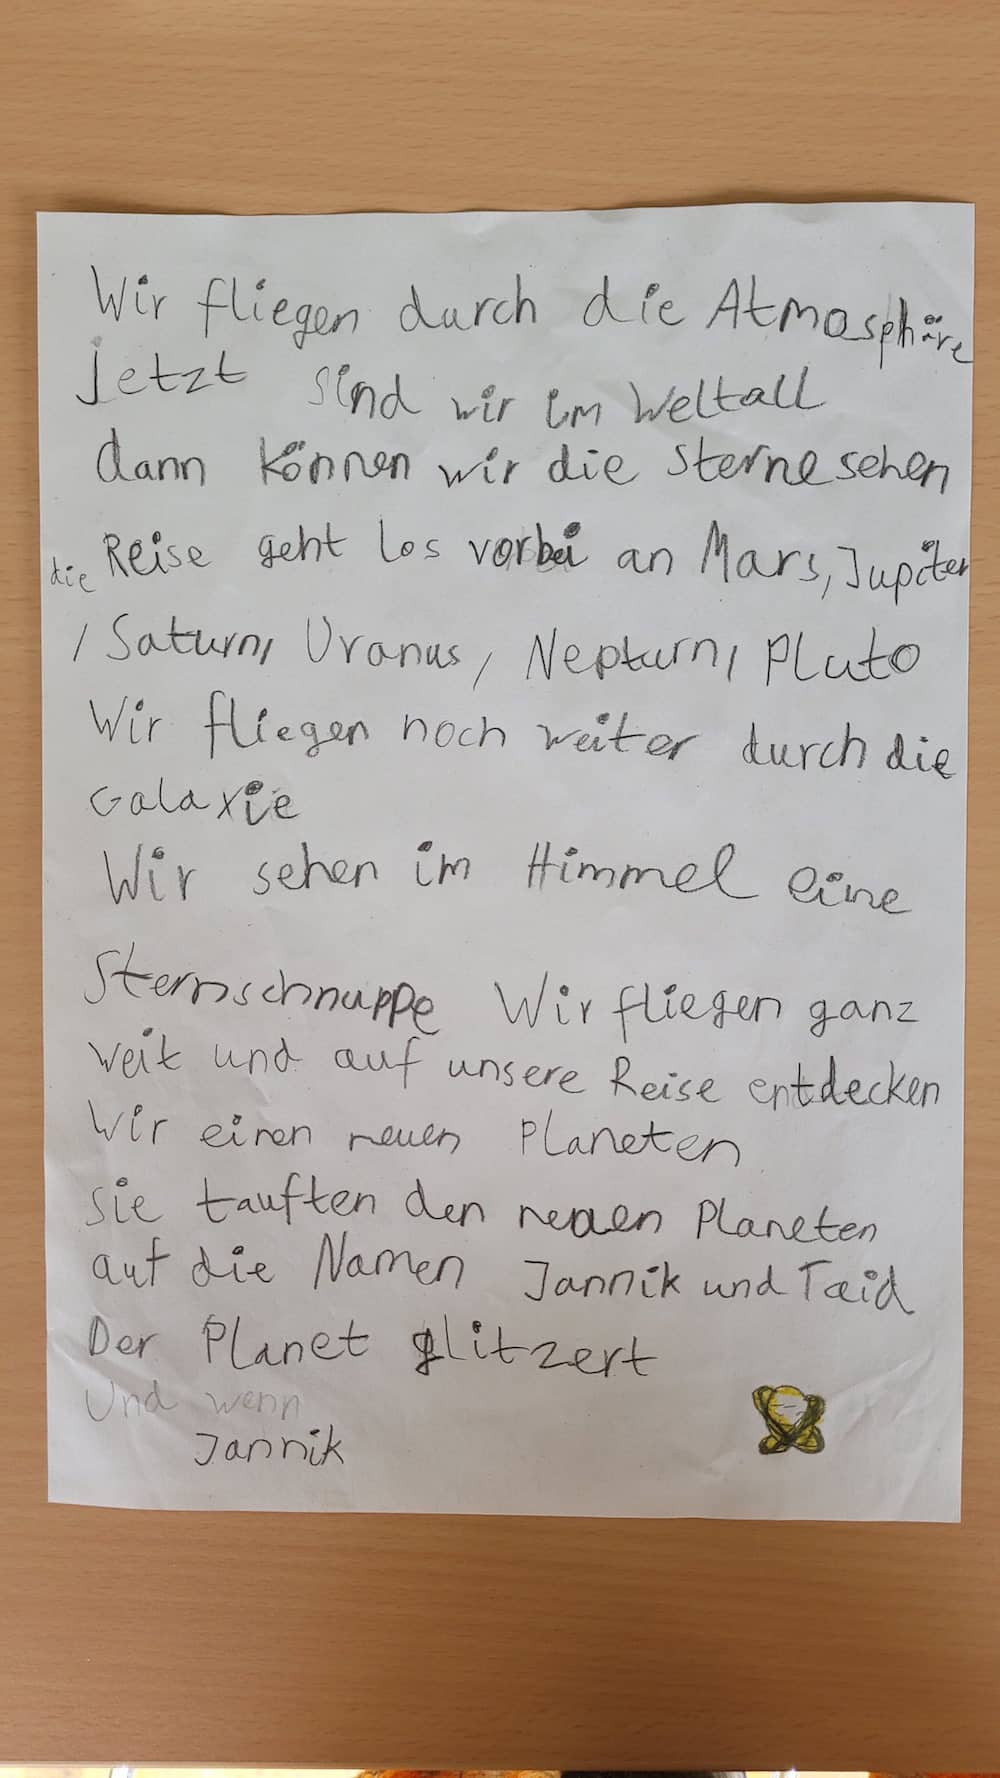 Wir fliegen durch die Atmosphäre
Jetzt sind wir im Weltall
dann können wir die Sterne sehen
die Reise geht los vorbei an Mars, Jupiter
, Saturn, Uranus, Nepturn, Pluto
Wir fliegen noch weiter durch die
Galaxie
Wir sehen im Himmel eine
Sternschnuppe Wir fliegen ganz
weit und auf unsere Reise entdecken
Wir einen neuen Planeten
sie tauften den neuen Planeten
auf die Namen Jannik und Taid
Der Planet glitzert
Und wenn
Jannik